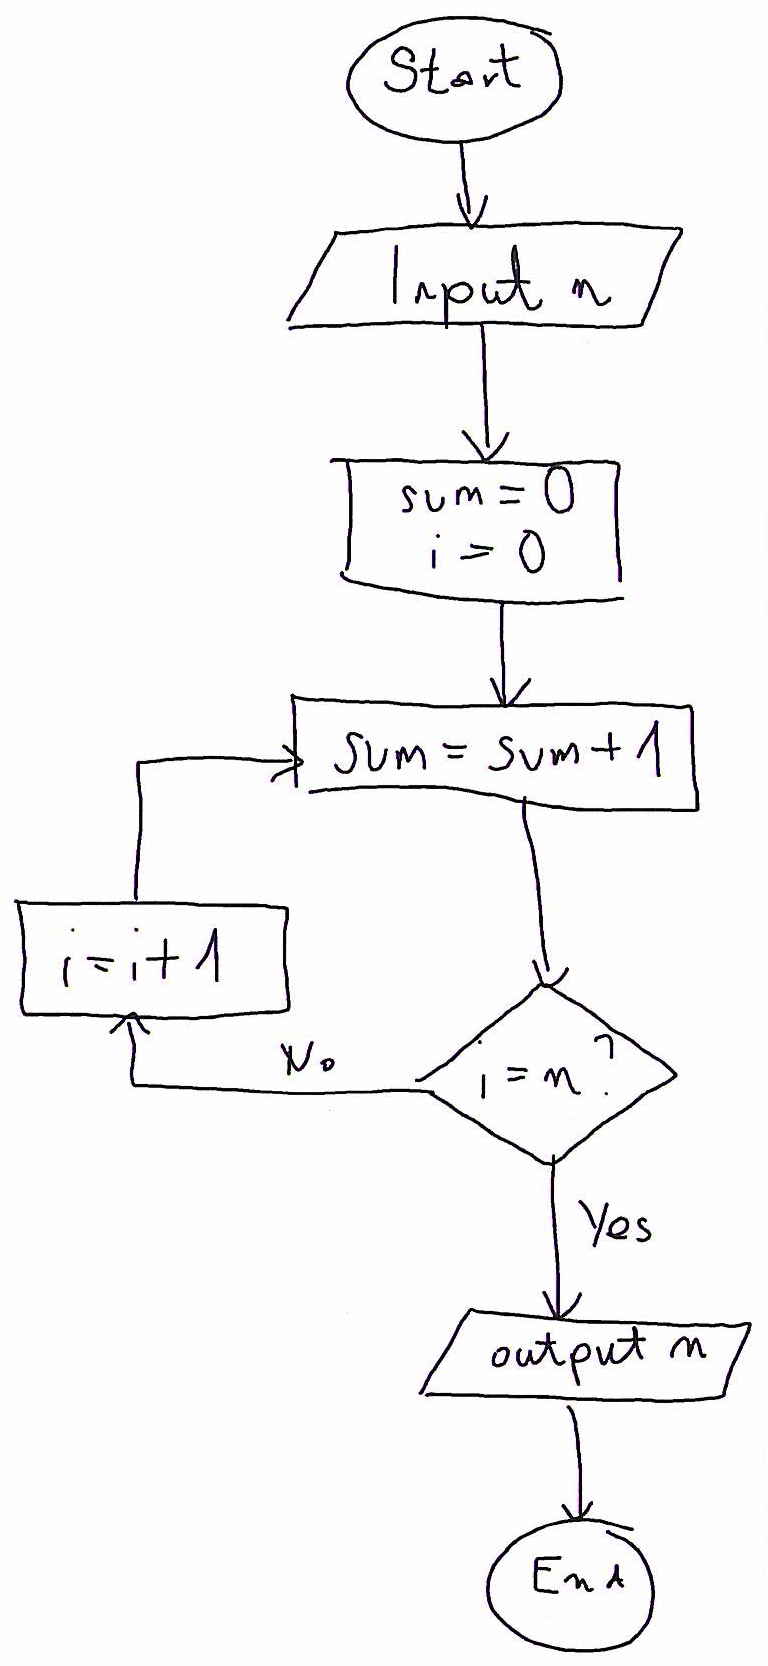 Start
Input n
sum = 0
i = 0
sum = sum + 1
i = i + 1
No
i = n ?
Yes
output n
End